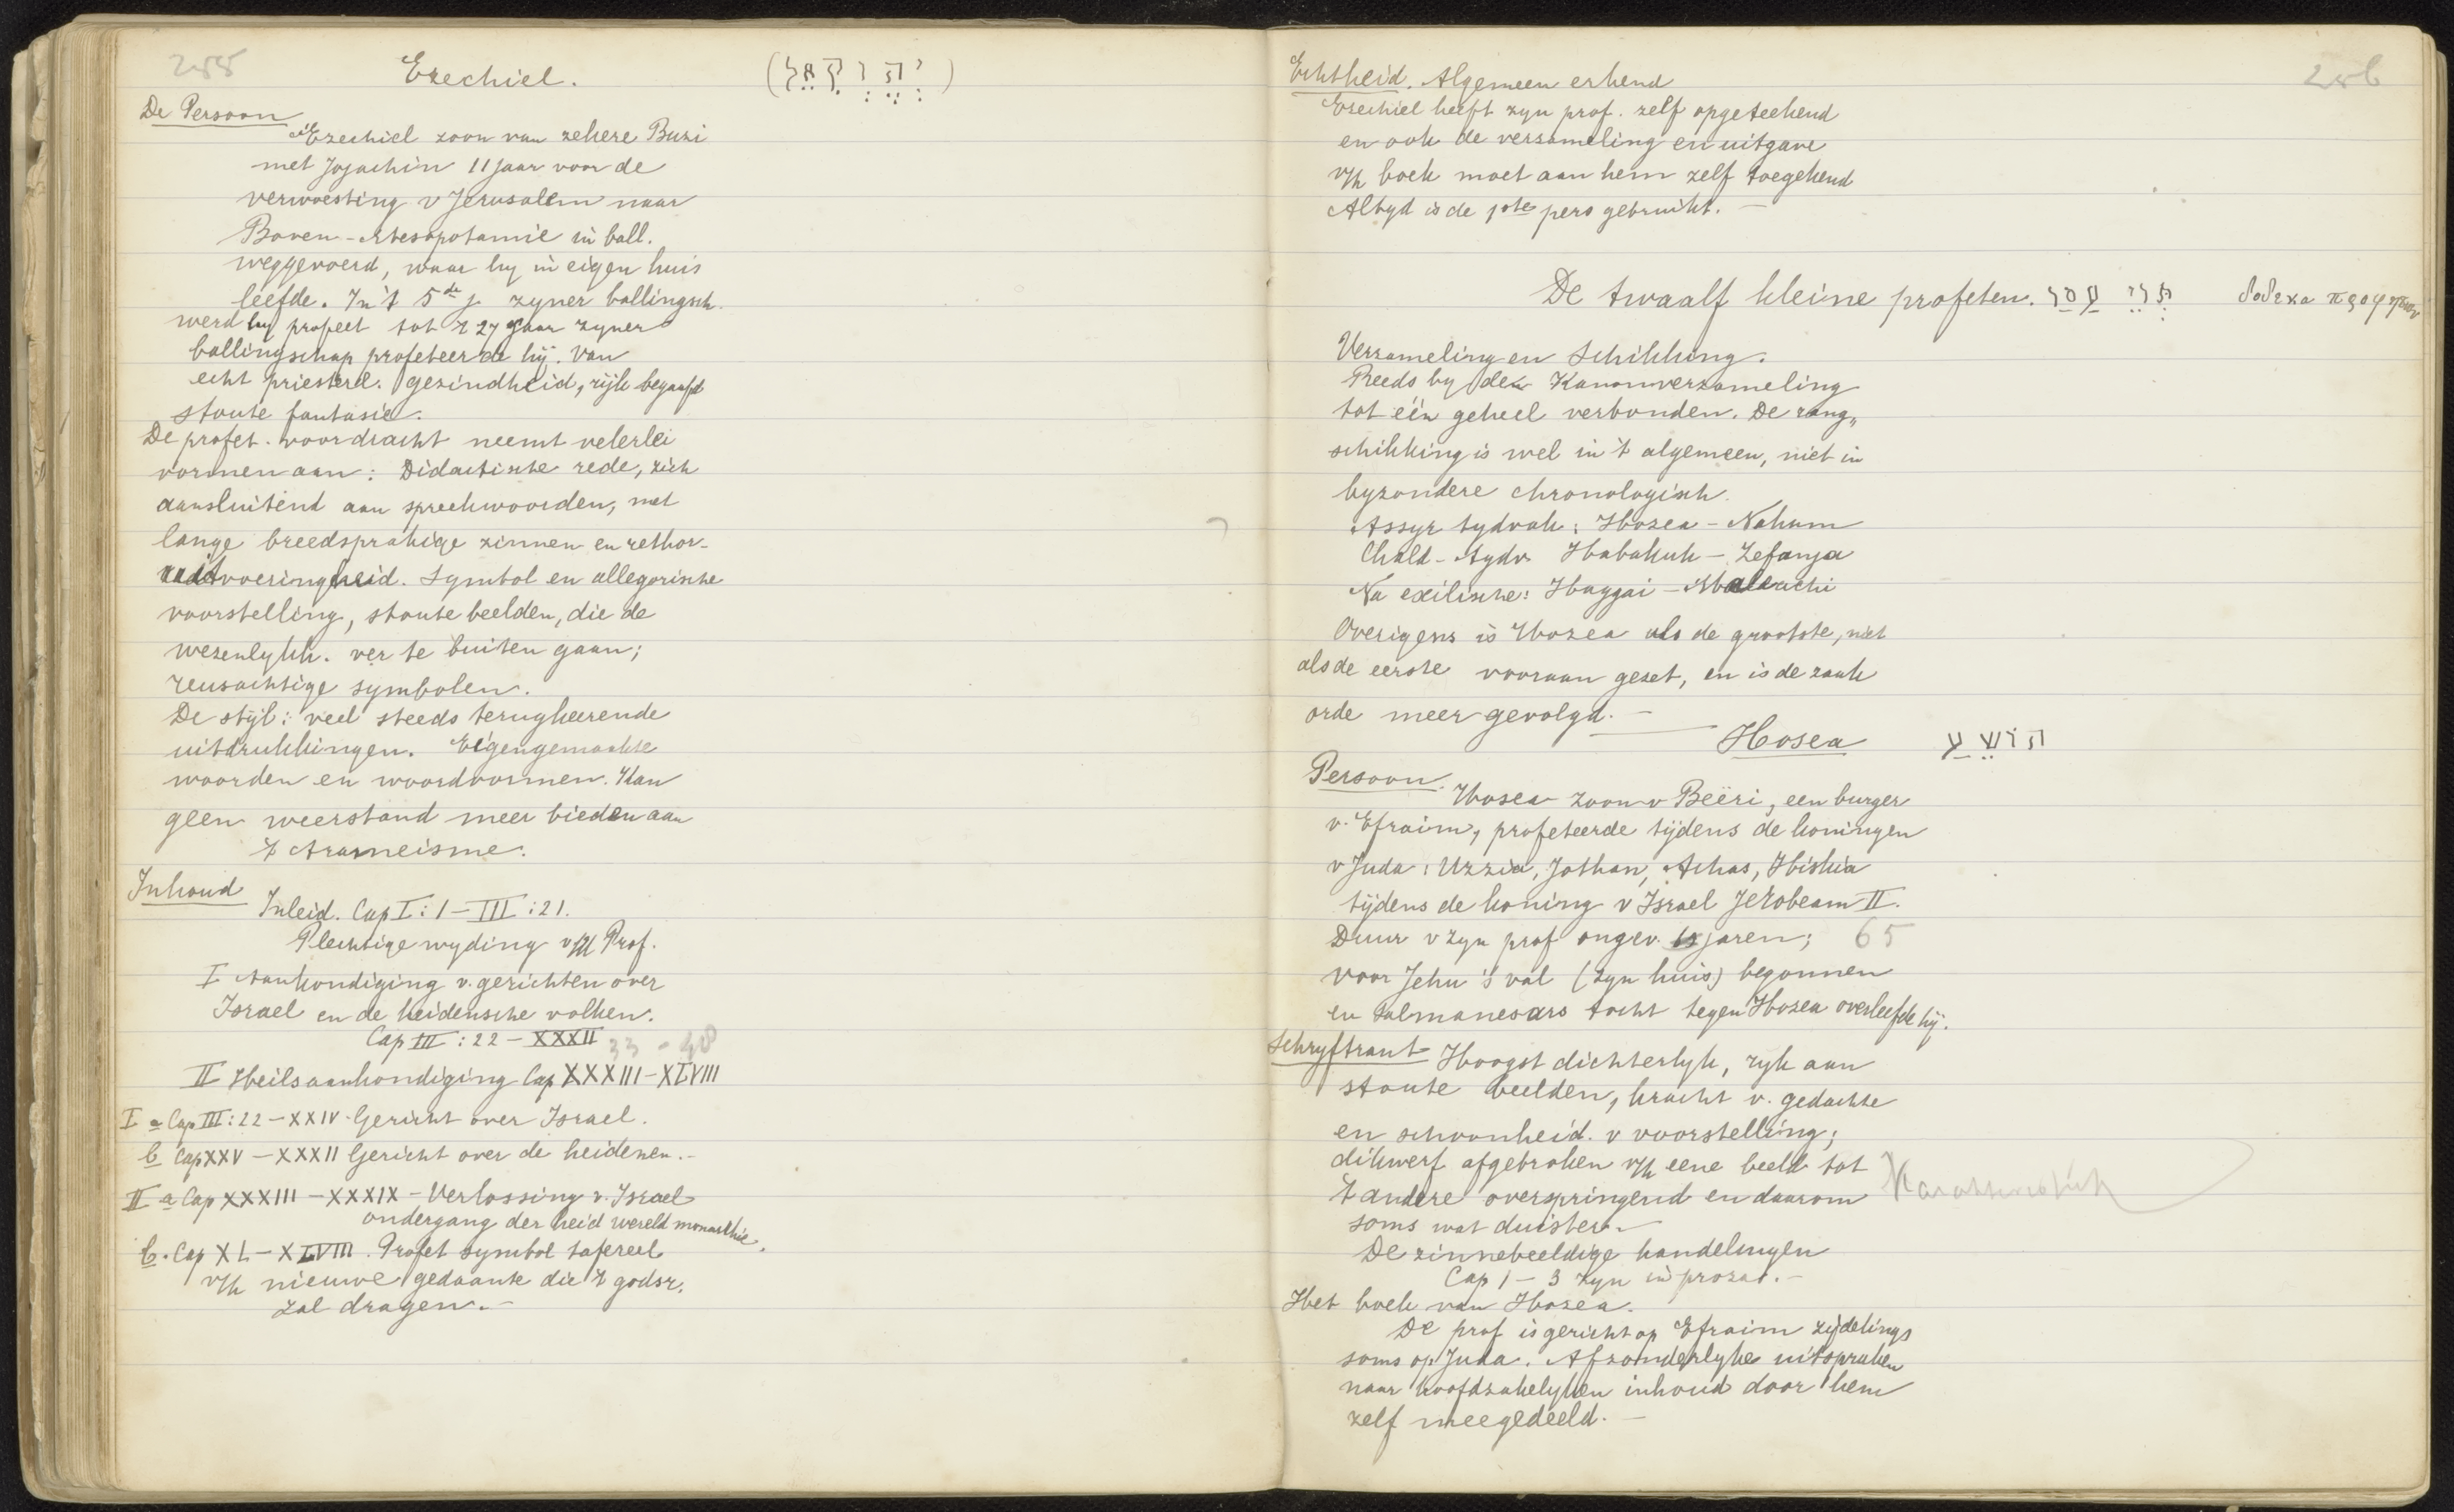 255
Ezechiel.
De Persoon
Ezechiel zoon van zekere Buzi
met Jojachin 11 jaar voor de
verwoesting v Jerusalem naar
Boven-Mesopotamië in ball.
weggevoerd, waar hy in eigen huis
leefde. In 't 5de j. zyner ballingsch.
werd hy profeet tot 't 27 jaar zyner
ballingschap profeteerde hij. Van
echt priesterl. gezindheid, rijk begaafd
stoute fantasie.
De profet. voordracht neemt velerlei
vormen aan: Didactische rede, zich
aansluitend aan spreekwoorden, met
lange breedsprakige zinnen en rethor-
uitvoeringheid. Symbol en allegorische
voorstelling, stoute beelden, die de
wezenlykh. ver te buiten gaan;
reusachtige symbolen.
De stijl: veel steeds terugkeerende
uitdrukkingen. Eigengemaakte
woorden en woordvormen. Kan
geen weerstand meer bieden aan
't Arameisme.
Inhoud
Inleid. Cap I:1-III:21.
Plechtige wyding v/d Prof.
I Aankondiging v. gerichten over
Israel en de heidensche volken.
Cap III:22-XXXII 33-48
II Heilsaankondiging Cap XXXIII-XLVIII
I a Cap III:22-XXIV. Gericht over Israel.
b Cap XXV-XXXII Gericht over de heidenen.-
II a Cap XXXIII-XXXIX- Verlossing v. Israel
ondergang der heid wereld monarchie.
b. Cap XL-XLVIII. Profet symbol tafereel
v/h nieuwe gedaante die 't godsr.
zal dragen.-
256
Echtheid. Algemeen erkend
Ezechiel heeft zyn prof. zelf opgeteekend
en ook de verzameling en uitgave
v/h boek moet aan hem zelf toegekend
Altyd is de 1ste pers gebruikt.-
De twaalf kleine profeten. תרי עסר
Verzameling en Schikking.
Reeds by den Kanonverzameling
tot één geheel verbonden. De rang„
schikking is wel in 't algemeen, niet in
byzondere chronologisch.
Assyr tydvak: Hosea-Nahum
Chald-tydv. Habakuk-Zefanja
Na exilische: Haggai-Maleachi
Overigens is Hosea als de grootste, niet
als de eerste vooraan gezet, en is de zaak
orde meer gevolgd.-
Hosea הושע
Persoon.
Hosea zoon v Beëri, een burger
v. Efraim, profeteerde tijdens de koningen
v Juda: Uzzia, Jotham, Achas, Hiskia
tijdens de koning v Israel Jerobeam II.
Duur v zyn prof ongev. jaren; 65
voor Jehu's val (zyn huis) begonnen
en Salmanesars tocht tegen Hosea overleefde hij.
Schryftrant Hoogst dichterlyk, ryk aan
stoute beelden, kracht v. gedachte
en schoonheid. v voorstelling;
dikwerf afgebroken v/h eene beeld tot
't andere overspringend en daarom Karakteristiek
soms wat duister.-
De zinnebeeldige handelingen
Cap 1-3 zyn in proza.-
Het boek van Hosea.
De prof is gericht op Efraim zijdelings
soms op Juda. Afzonderlyke uitspraken
naar hoofdzakelyken inhoud door hem
zelf meegedeeld.-